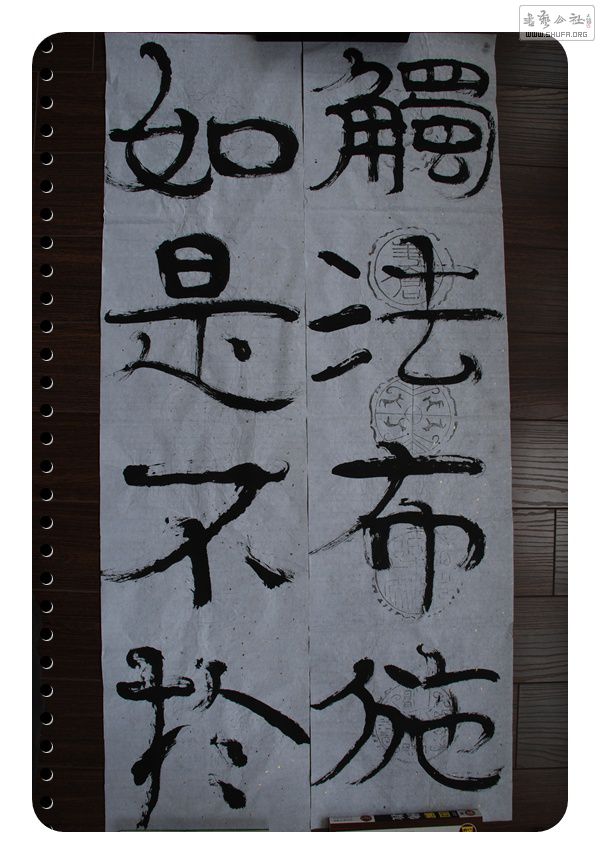 書藝公社
WWW.SHUFA.ORG
觸法布施
如是不於